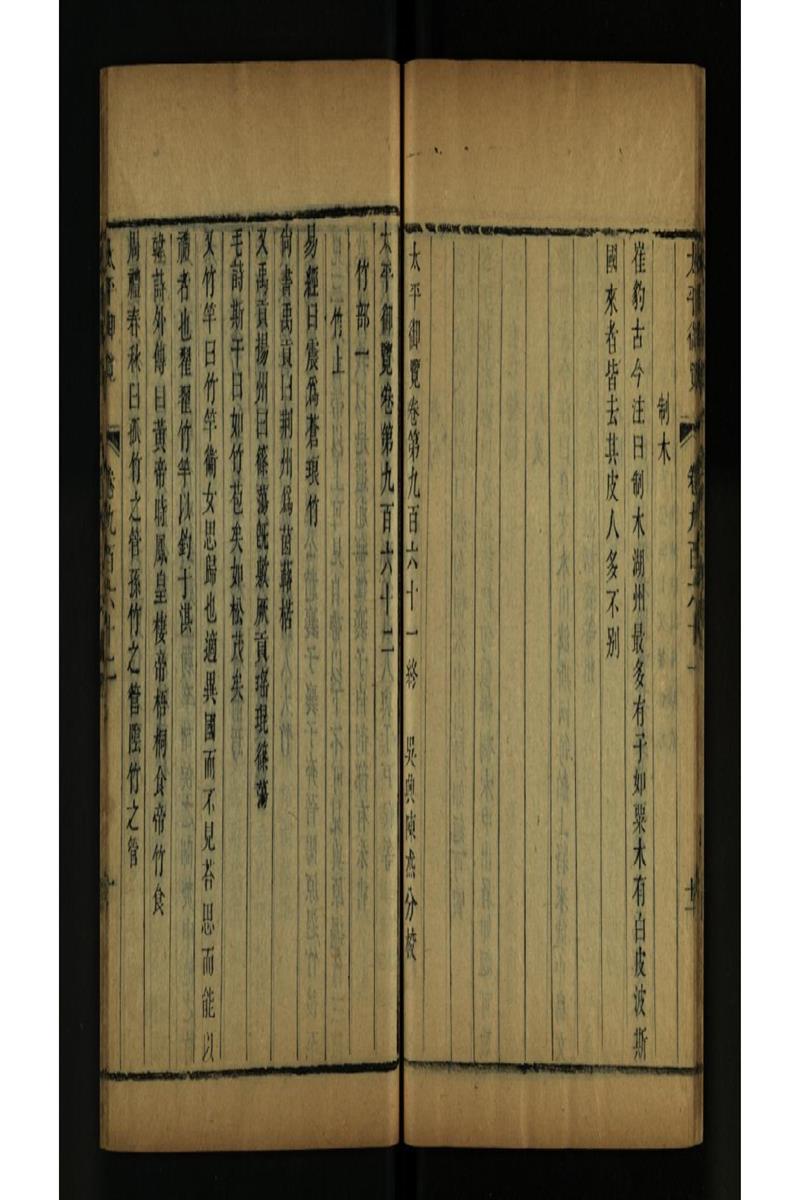 太平御覽 卷九百六十一 十二
制木
崔豹古今注曰制木湖州最多有子如粟木有白皮波斯
國來者皆去其皮人多不别
太平御覽卷第九百六十一終 吳興陳杰分校
太平御覽卷第九百六十二
竹部一
竹上
易經曰震爲蒼琅竹
尚書禹貢曰荆州爲菌簵楛
又禹貢揚州曰篠簜旣敷厥貢瑤琨篠簜
毛詩斯干曰如竹苞矣如松茂矣
又竹竿曰竹竿衛女思歸也適異國而不見荅思而能以
禮者也翟翟竹竿以釣于淇
韓詩外傳曰黃帝時鳳皇棲帝梧桐食帝竹食
周禮春秋曰孤竹之管孫竹之管陰竹之管
太平御覽 卷九百六十二 一